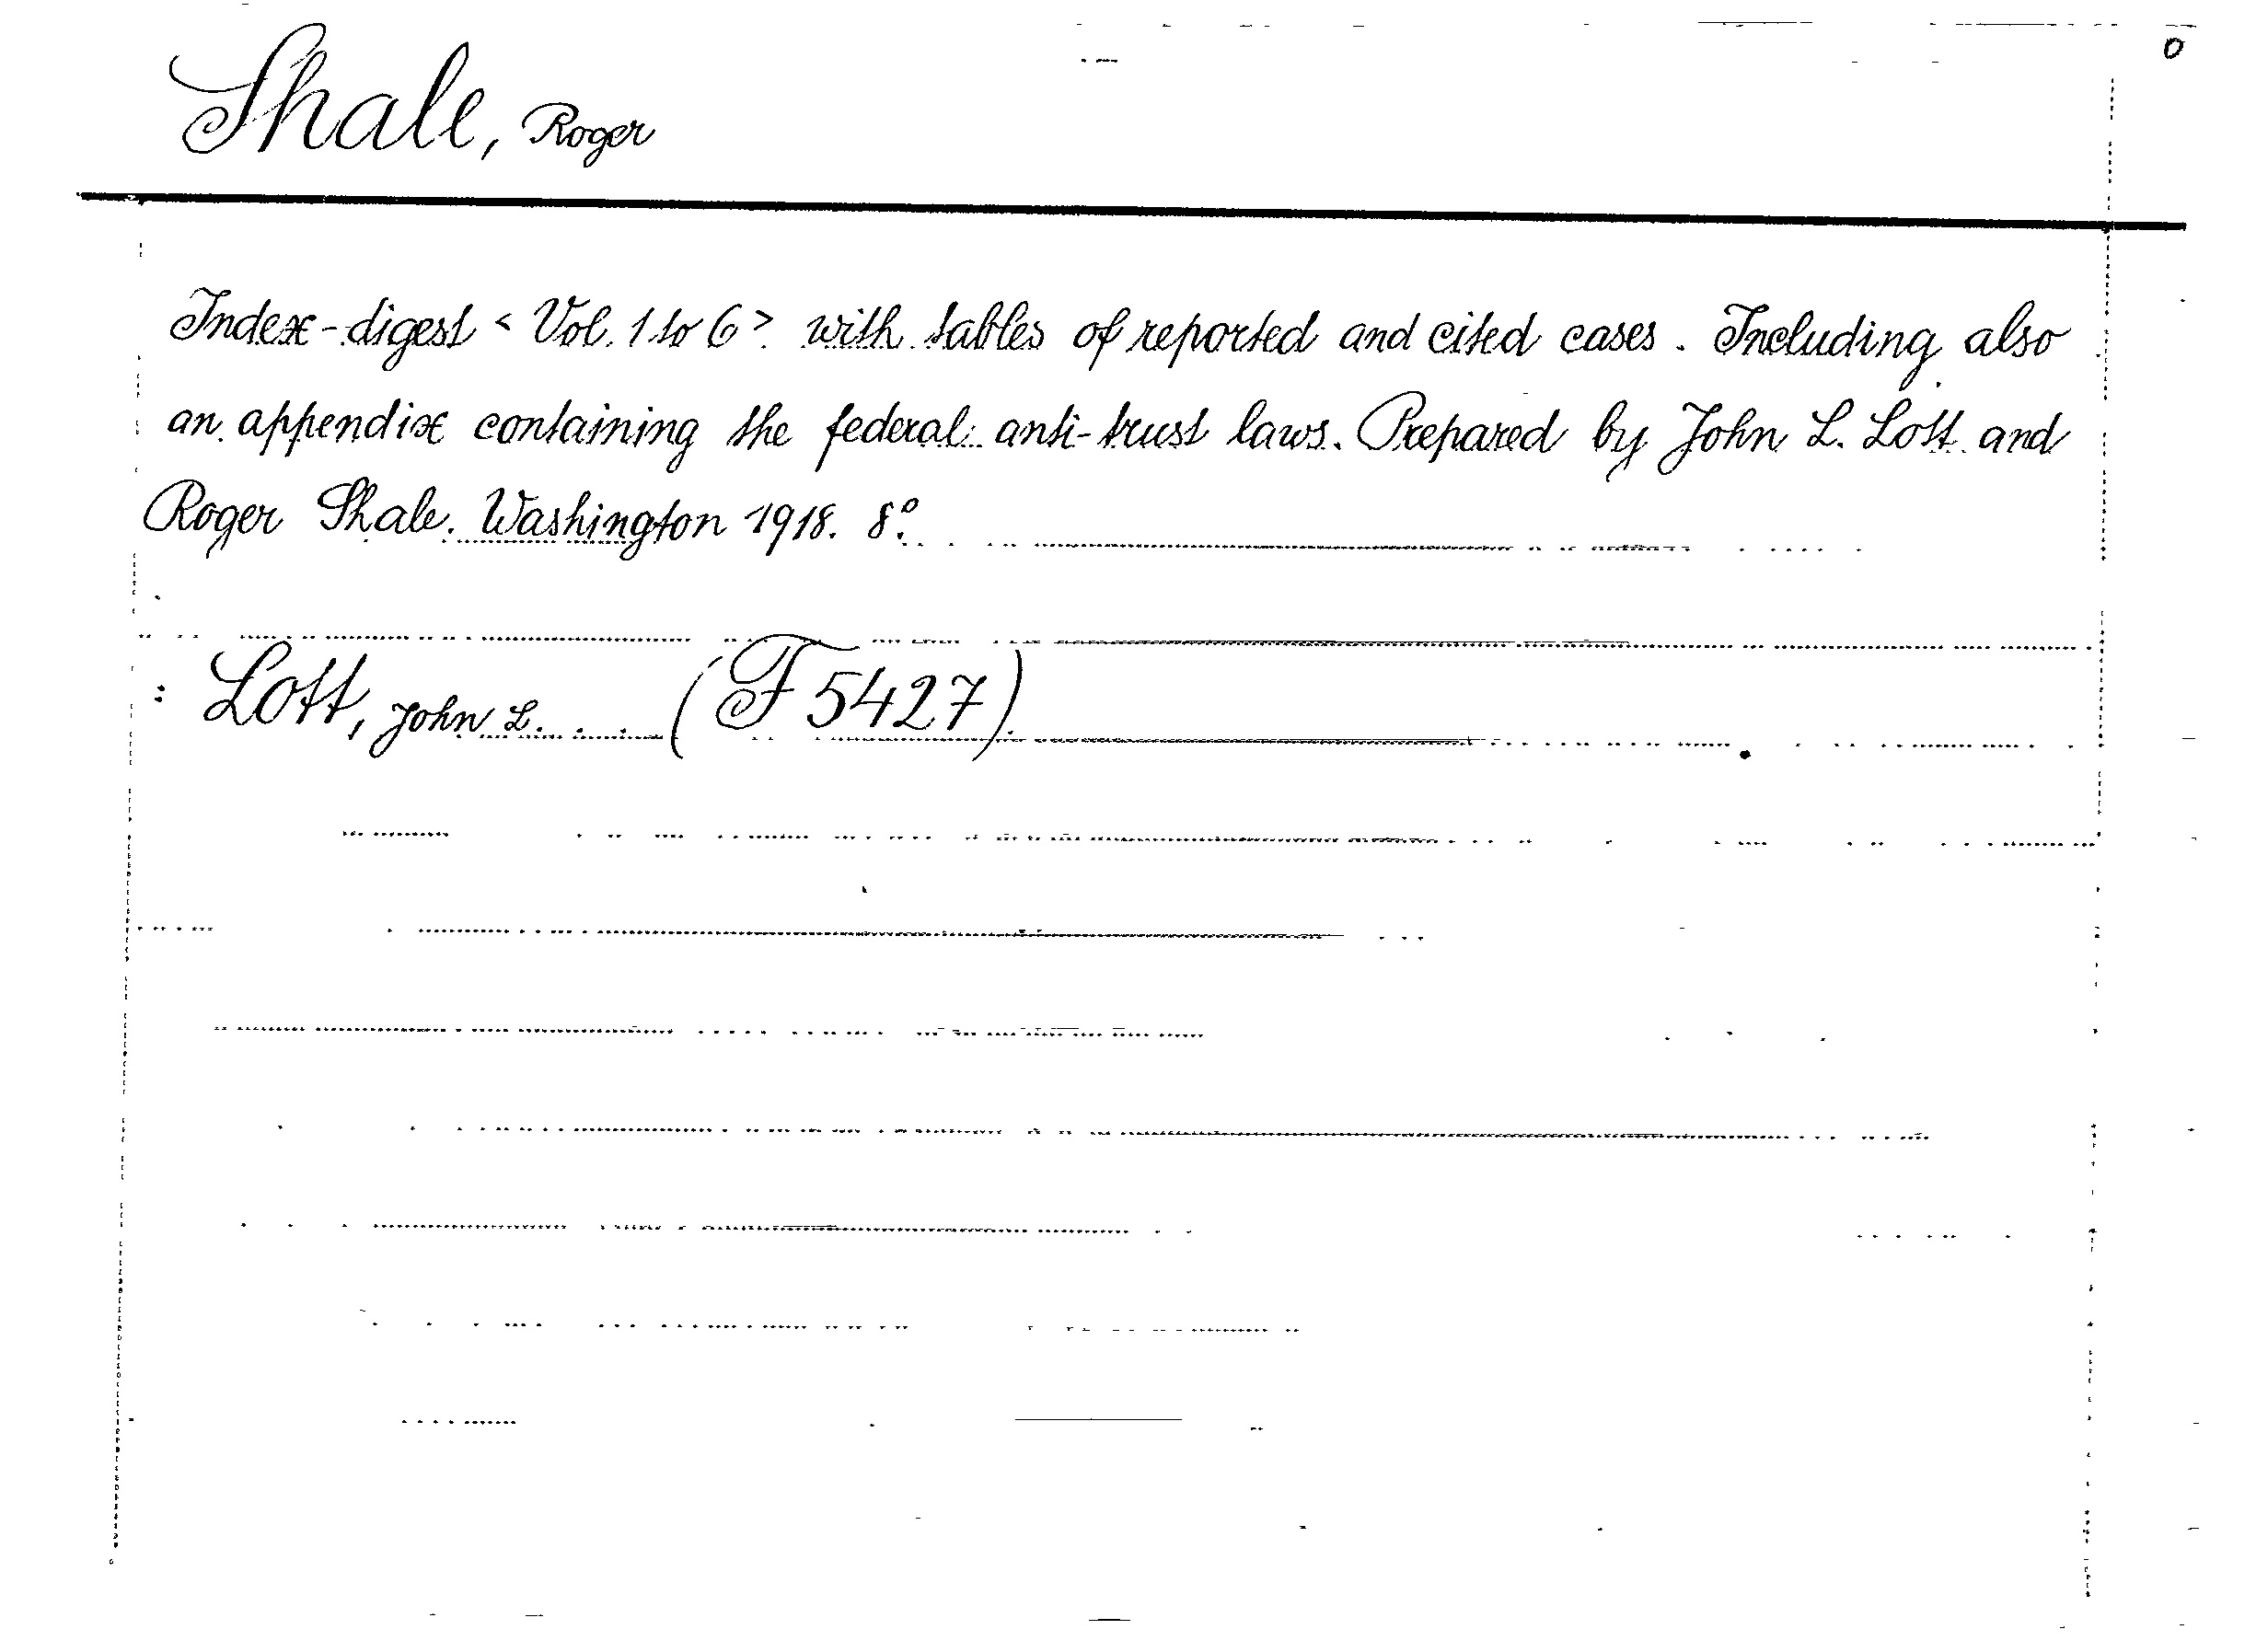 0
Shale, Roger
Index-digest < Vol. 1 to 6 > with tables of reported and cited cases. Including also
an appendix containing the federal anti-trust laws. Prepared by John L. Lott and
Roger Shale. Washington 1918. 8°.
: Lott, John L. . . . (F 5427).